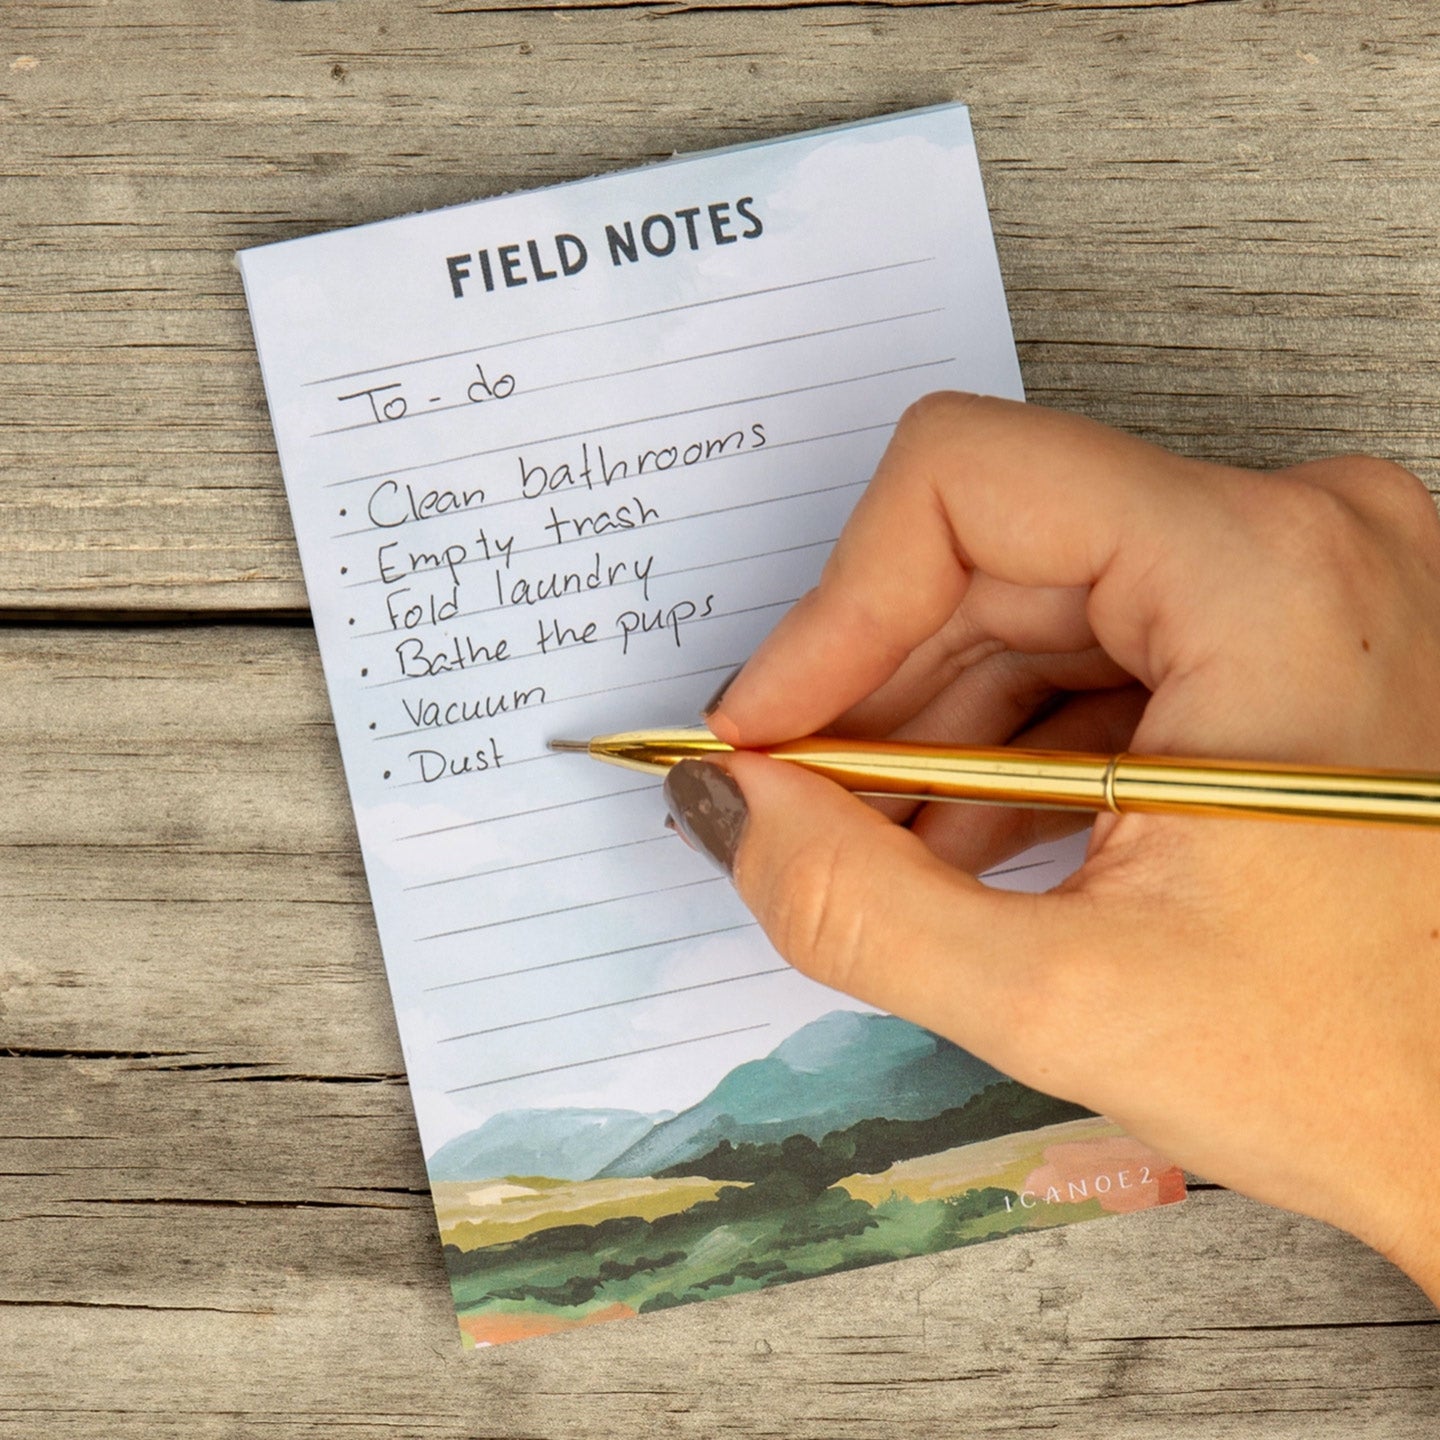 FIELD NOTES
To-do
• Clean bathrooms
• Empty trash
• Fold laundry
• Bathe the pups
• Vacuum
• Dust
1CANOE2